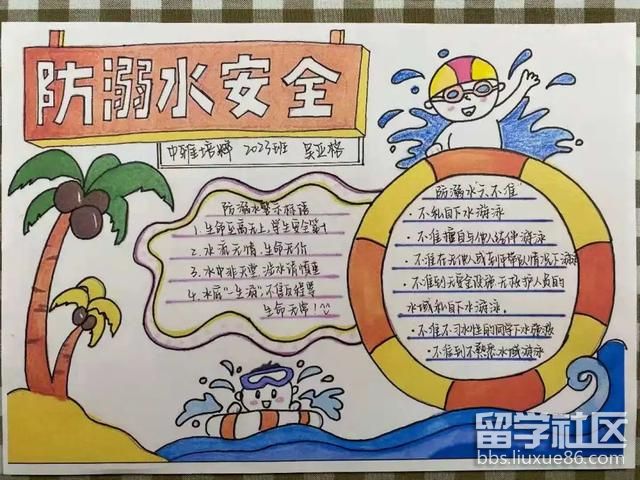 防溺水安全
中雅培粹 2023班 吴亚格
防溺水警示标语
1. 生命至高无上,学生安全第一
2. 水有无情,生命无价
3. 水中非天堂,涉水请慎重
4. 水启"一生"漏,不值反轻率
生命无常!
防溺水"六不准"
·不私自下水游泳
·不准擅自与他人结伴游泳
·不准在无他人或
·不准到无安全设施、无救护人员的
水域私自下水游泳.
·不准不习水性的同学下水施救
·不准到不熟悉水域游泳
留学社区
bbs.liuxue86.com